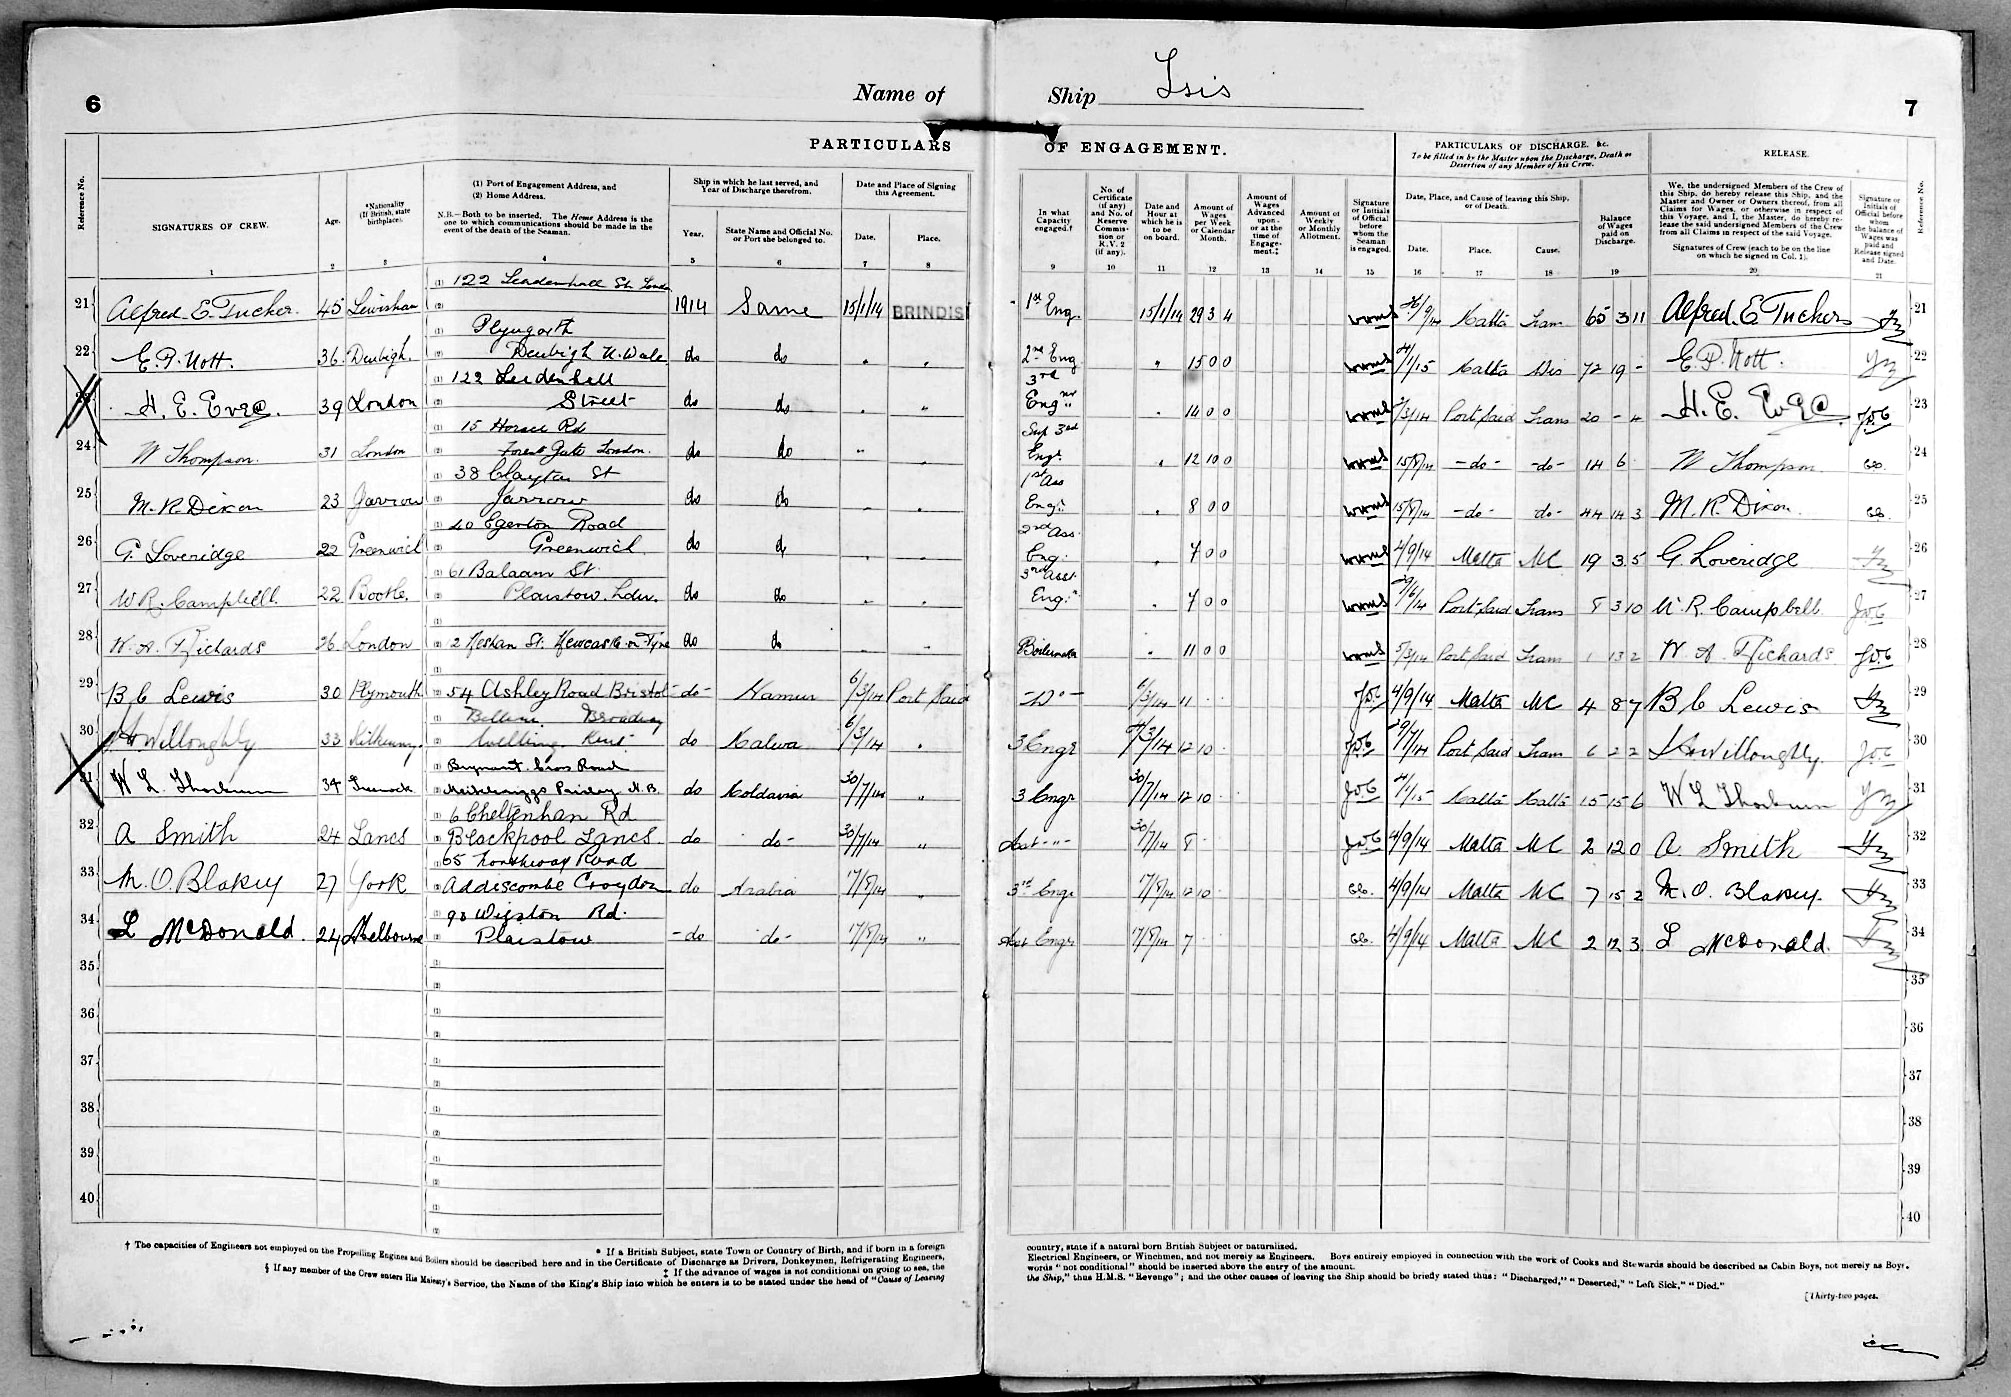 6
Name of
Ship Isis
7
PARTICULARS
OF ENGAGEMENT.
PARTICULARS OF DISCHARGE, &c.
To be filled in by the Master upon the Discharge, Death or
Desertion of any Member of his Crew.
RELEASE.
Reference No.
SIGNATURES OF CREW.
Age.
*Nationality
(If British, state
birthplace).
(1) Port of Engagement Address, and
(2) Home Address.
N.B.—Both to be inserted. The Home Address is the
one to which communications should be made in the
event of the death of the Seaman.
Ship in which he last served, and
Year of Discharge therefrom.
Year.
State Name and Official No.
or Port she belonged to.
Date and Place of Signing
this Agreement.
Date.
Place.
In what
Capacity
engaged.†
No. of
Certificate
(if any)
and No. of
Reserve
Commis-
sion or
R.V. 2
(if any).
Date and
Hour at
which he is
to be
on board.
Amount of
Wages
per Week
or Calendar
Month.
Amount of
Wages
Advanced
upon
or at the
time of
Engage-
ment.‡
Amount of
Weekly
or Monthly
Allotment.
Signature
or Initials
of Official
before
whom the
Seaman
is engaged.
Date, Place, and Cause of leaving this Ship,
or of Death.
Date.
Place.
Cause.
Balance
of Wages
paid on
Discharge.
We, the undersigned Members of the Crew of
this Ship, do hereby release this Ship, and the
Master and Owner or Owners thereof, from all
Claims for Wages, or otherwise in respect of
this Voyage, and I, the Master, do hereby re-
lease the said undersigned Members of the Crew
from all Claims in respect of the said Voyage.
Signatures of Crew (each to be on the line
on which he signed in Col. 1).
Signature or
Initials of
Official before
whom
the balance of
Wages was
paid and
Release signed
and Date.
Reference No.
1 2 3 4 5 6 7 8 9 10 11 12 13 14 15 16 17 18 19 20 21
21 Alfred E. Tucker. 45 Lewisham (1) 122 Leadenhall St. London (2) 1914 Same 15/1/14 BRINDISI 1st Eng. 15/1/14 29 3 4 26/9/14 Malta Trans 65 3 11 Alfred E. Tucker 21
22 E. P. Nott. 36 Denbigh. (1) (2) Denbigh N. Wales do do " " 2nd Eng " 15 0 0 4/1/15 Malta Dis 72 19 - E. P. Nott. 22
H. E. 39 London (1) 122 Leidenhall (2) Street do do " " 3rd Engnr " 14 0 0 Port Said Trans 20 - 4 H. E. J.O.C 23
24 W Thompson. 31 London (1) 15 Horace Rd (2) Forest Gate London. do do " " Sup 3rd Engr. " 12 10 0 15/8/14 -do- -do- 14 6 W Thompson 24
25 M. R. Dixon 23 Jarrow (1) 38 Clayton St (2) Jarrow do do " " 1st Ass Engr. " 8 0 0 15/8/14 -do- do- 44 14 3 M. R. Dixon. 25
26 G. Loveridge 22 Greenwich (1) 40 Egerton Road (2) Greenwich. do do " " 2nd Ass. Eng. " 7 0 0 4/9/14 Malta MC 19 3 5 G. Loveridge 26
27 W R. Campbell. 22 Bootle. (1) 61 Balaam St. (2) Plaistow Ldn. do do " " 3rd Asst. Engr. " 7 0 0 29/6/14 Port Said Trans 8 3 10 W. R. Campbell J.O.C 27
28 W. A. Richards 26 London (1) (2) St. Newcastle on Tyne do do " " Boilermaker " 11 0 0 5/3/14 Port Said Trans 1 13 2 W. A. Richards J.O.C 28
29 B. C Lewis 30 Plymouth (1) (2) 54 Ashley Road Bristol -do- Namur 6/3/14 Port Said -Do- 6/3/14 11 J.O.C 4/9/14 Malta MC 4 8 7 B C Lewis 29
30 Willoughby 33 Kilkenny. (1) Broadway (2) Welling Kent do Malwa 6/3/14 " 3 Engr 6/3/14 12 10 J.O.C 29/7/14 Port Said Trans 6 2 2 Willoughby. J.O.C 30
31 W L Thorburn 34 Greenock (1) Cross Road (2) Paisley N.B. do Moldavia 30/7/14 " 3 Engr 30/7/14 12 10 J.O.C 4/1/15 Malta Malta 15 15 6 W L Thorburn 31
32 A Smith 24 Lancs (1) 6 Cheltenham Rd (2) Blackpool Lancs. do do- 30/7/14 " Asst -"- 30/7/14 8 J.O.C 4/9/14 Malta MC 2 12 0 A. Smith 32
33 M. O. Blakey 27 York (1) 65 Northway Road (2) Addiscombe Croydon do Arabia 17/8/14 " 3rd Engr 17/8/14 12 10 4/9/14 Malta MC 7 15 2 M. O. Blakey. 33
34 L McDonald. 24 Melbourne (1) 98 Wigston Rd. (2) Plaistow -do do- 17/8/14 " Asst Engr 17/8/14 7 4/9/14 Malta MC 2 12 3 L McDonald. 34
35 (1) (2) 35
36 (1) (2) 36
37 (1) (2) 37
38 (1) (2) 38
39 (1) (2) 39
40 (1) (2) 40
* If a British Subject, state Town or Country of Birth, and if born in a foreign
country, state if a natural born British Subject or naturalized.
† The capacities of Engineers not employed on the Propelling Engines and Boilers should be described here and in the Certificate of Discharge as Drivers, Donkeymen, Refrigerating Engineers,
Electrical Engineers, or Winchmen, and not merely as Engineers. Boys entirely employed in connection with the work of Cooks and Stewards should be described as Cabin Boys, not merely as Boys.
‡ If the advance of wages is not conditional on going to sea, the
words "not conditional" should be inserted above the entry of the amount.
§ If any member of the Crew enters His Majesty's Service, the Name of the King's Ship into which he enters is to be stated under the head of "Cause of Leaving
the Ship," thus H.M.S. "Revenge"; and the other causes of leaving the Ship should be briefly stated thus: "Discharged," "Deserted," "Left Sick," "Died."
[Thirty-two pages.